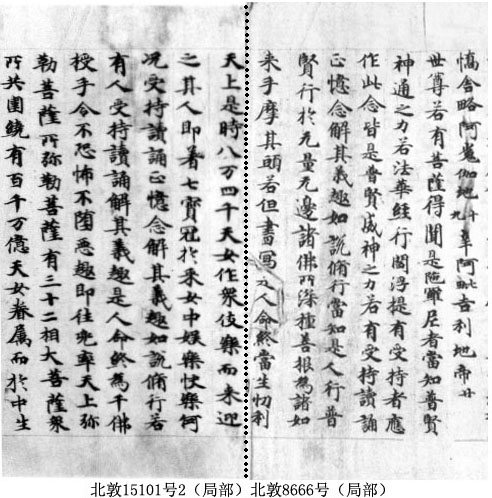 憍舍略阿㝹伽地十九辛阿毗吉利地帝廿
世尊若有菩薩得聞是陁羅尼者當知普賢
神通之力若法華經行閻浮提有受持者應
作此念皆是普賢威神之力若有受持讀誦
正憶念解其義趣如說脩行當知是人行普
賢行於无量无邊諸佛所深種善根為諸如
来手摩其頭若但書寫是人命終當生忉利
天上是時八万四千天女作眾伎樂而来迎
之其人即著七寶冠於采女中娛樂快樂何
况受持讀誦正憶念解其義趣如說脩行若
有人受持讀誦解其義趣是人命終為千佛
授手令不恐怖不堕惡趣即往兜率天上弥
勒菩薩所弥勒菩薩有三十二相大菩薩眾
所共圍繞有百千万億天女眷属而於中生
北敦15101号2（局部）北敦8666号（局部）